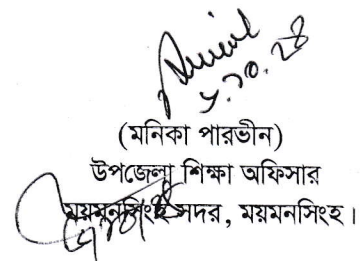 (মনিকা পারভীন)
উপজেলা শিক্ষা অফিসার
ময়মনসিংহ সদর, ময়মনসিংহ।